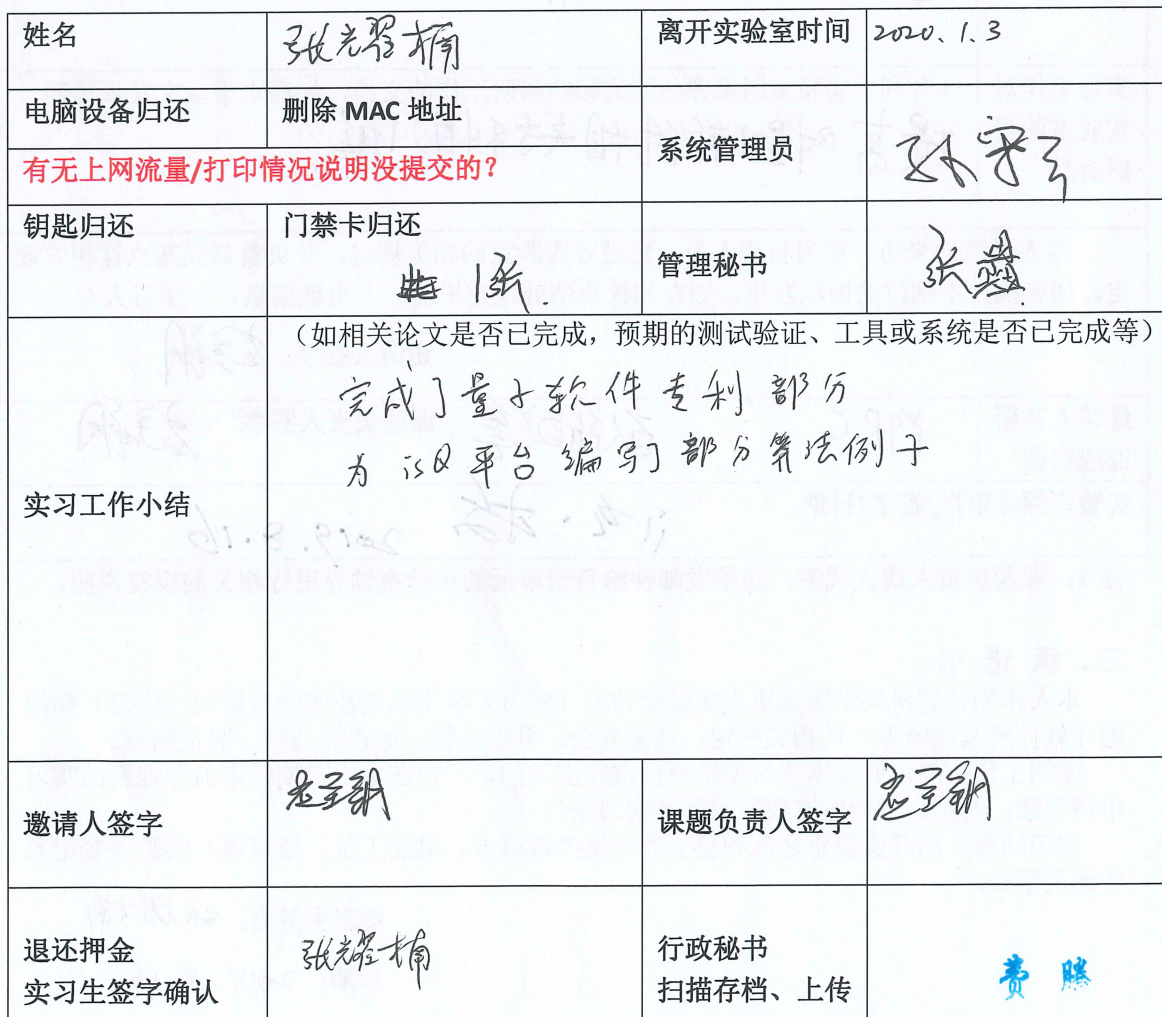 姓名
张耀楠
离开实验室时间
2020.1.3
电脑设备归还
删除 MAC 地址
有无上网流量/打印情况说明没提交的？
系统管理员
钥匙归还
门禁卡归还
1张
管理秘书
张
实习工作小结
（如相关论文是否已完成，预期的测试验证、工具或系统是否已完成等）
完成了量子软件专利部分
为 isQ 平台编写了部分算法例子
邀请人签字
课题负责人签字
退还押金
实习生签字确认
张耀楠
行政秘书
扫描存档、上传
费 腾